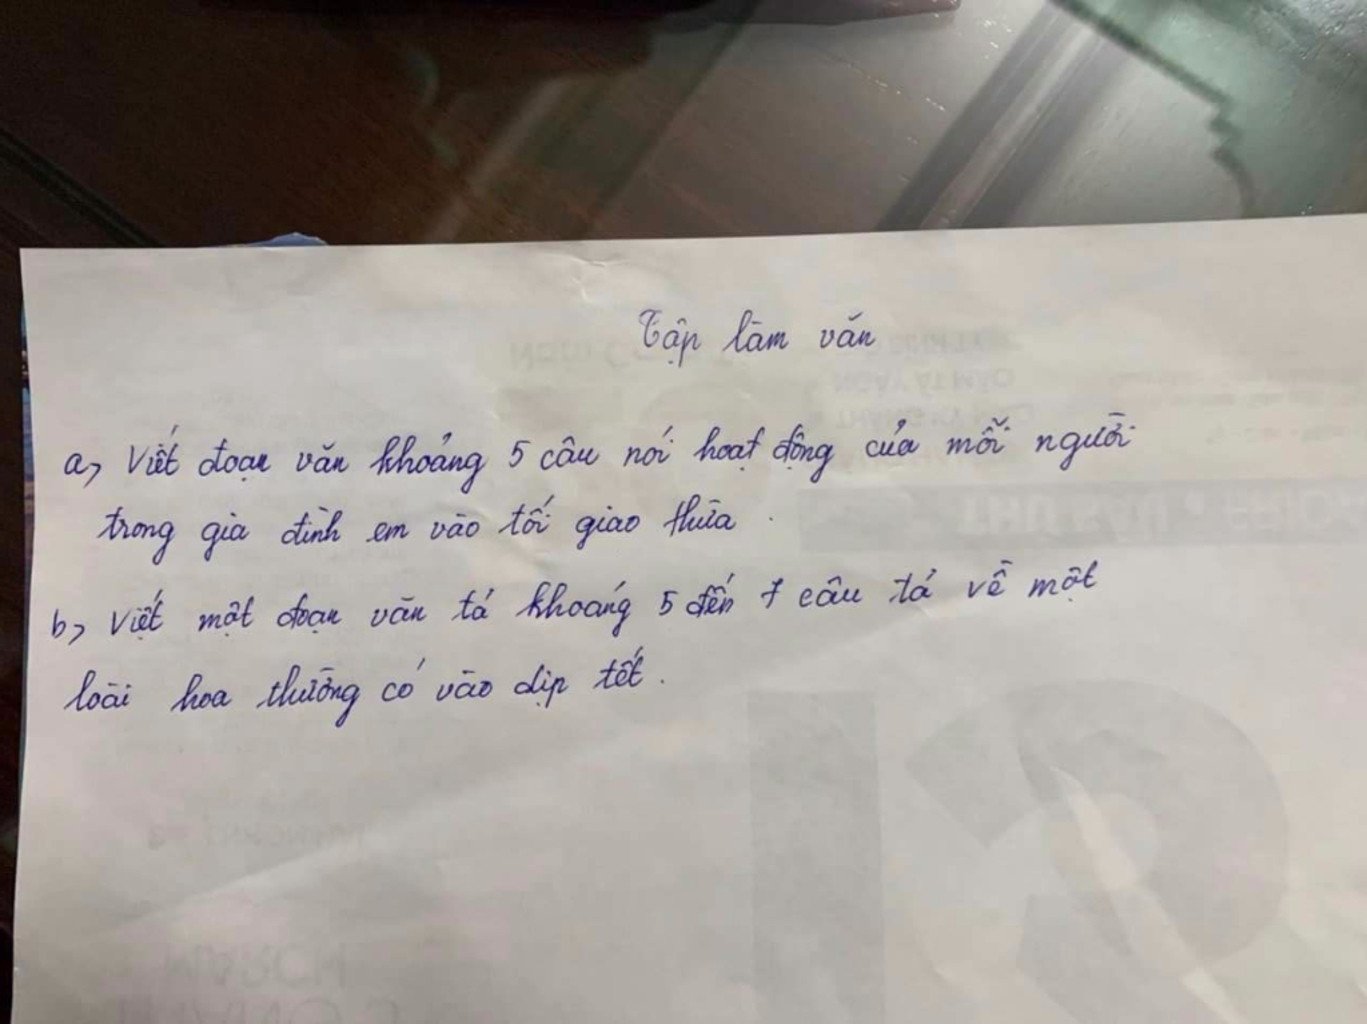 Tập làm văn
a, Viết đoạn văn khoảng 5 câu nói hoạt động của mỗi người
trong gia đình em vào tối giao thừa.
b, Viết một đoạn văn tả khoảng 5 đến 7 câu tả về một
loài hoa thường có vào dịp tết.